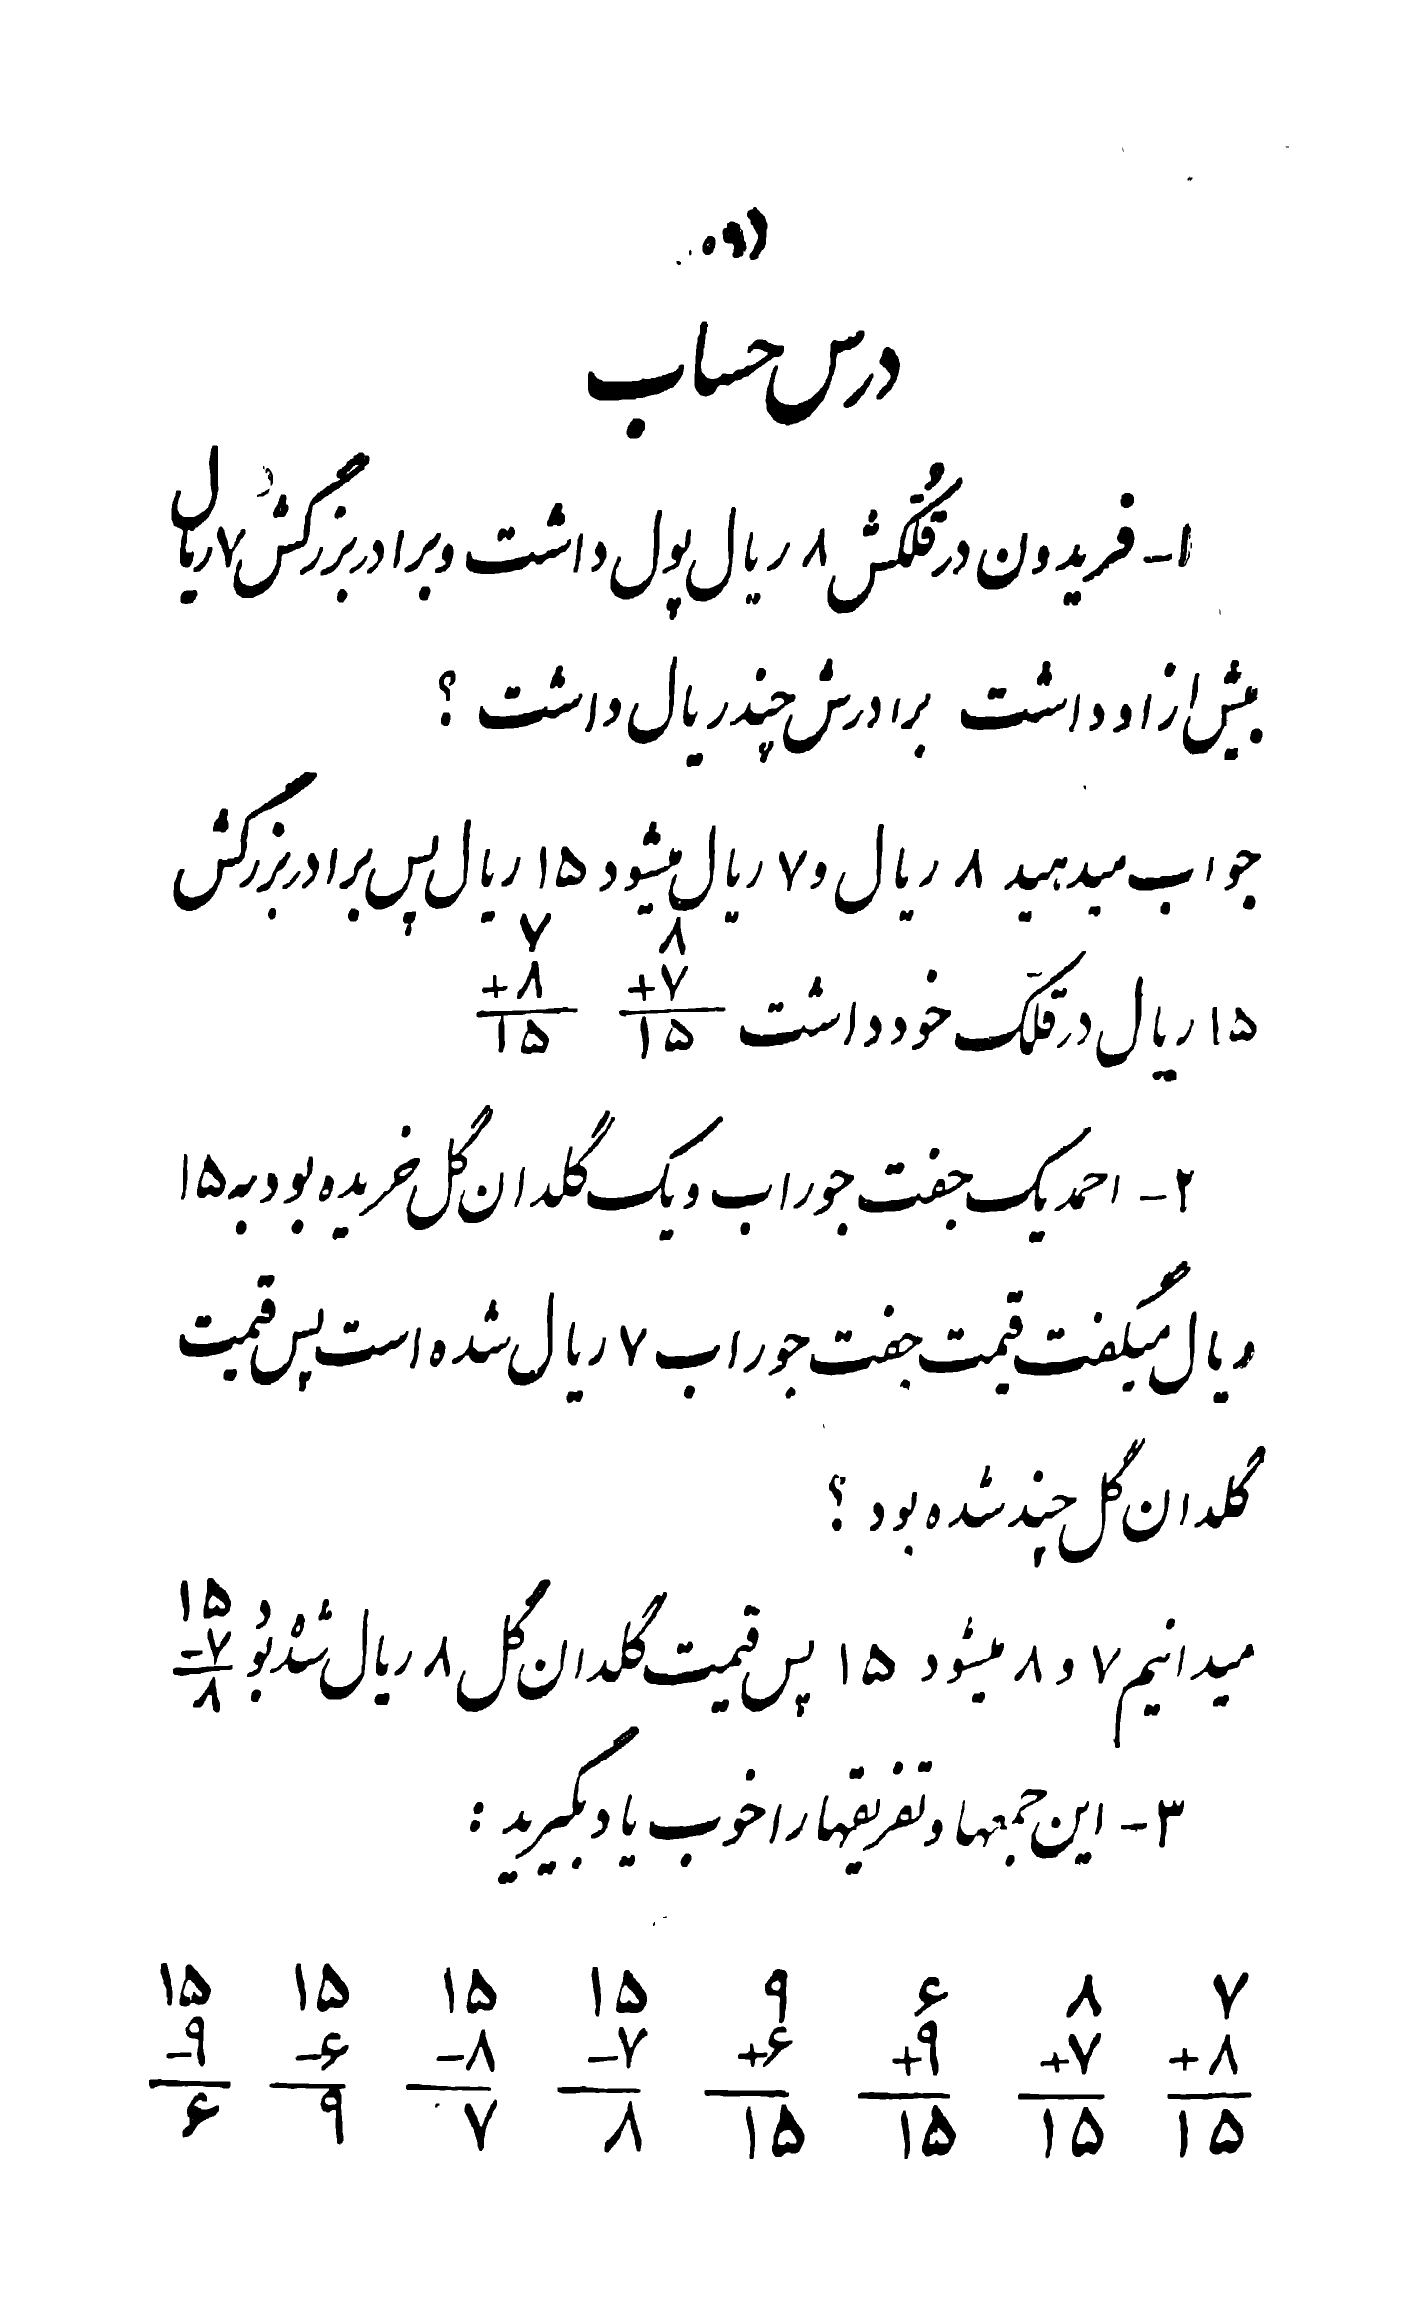 درس حساب
۱- فریدون در قلکش ۸ ریال پول داشت و برادر بزرگش ۷ ریال
بیش از او داشت برادرش چند ریال داشت ؟
جواب میدهید ۸ ریال و ۷ ریال میشود ۱۵ ریال پس برادر بزرگش
۸ ۷
+۷ +۸
۱۵ ریال در قلک خود داشت ۱۵ ۱۵
۲- احمد یک جفت جوراب و یک گلدان گل خریده بود به ۱۵
ریال میگفت قیمت جفت جوراب ۷ ریال شده است پس قیمت
گلدان گل چند شده بود ؟
۱۵
میدانیم ۷ و ۸ میشود ۱۵ پس قیمت گلدان گل ۸ ریال شده بود -۷
۸
۳- این جمعها و تفریقها را خوب یاد بگیرید :
۷ ۸ ۶ ۹ ۱۵ ۱۵ ۱۵ ۱۵
+۸ +۷ +۹ +۶ -۷ -۸ -۶ -۹
۱۵ ۱۵ ۱۵ ۱۵ ۸ ۷ ۹ ۶